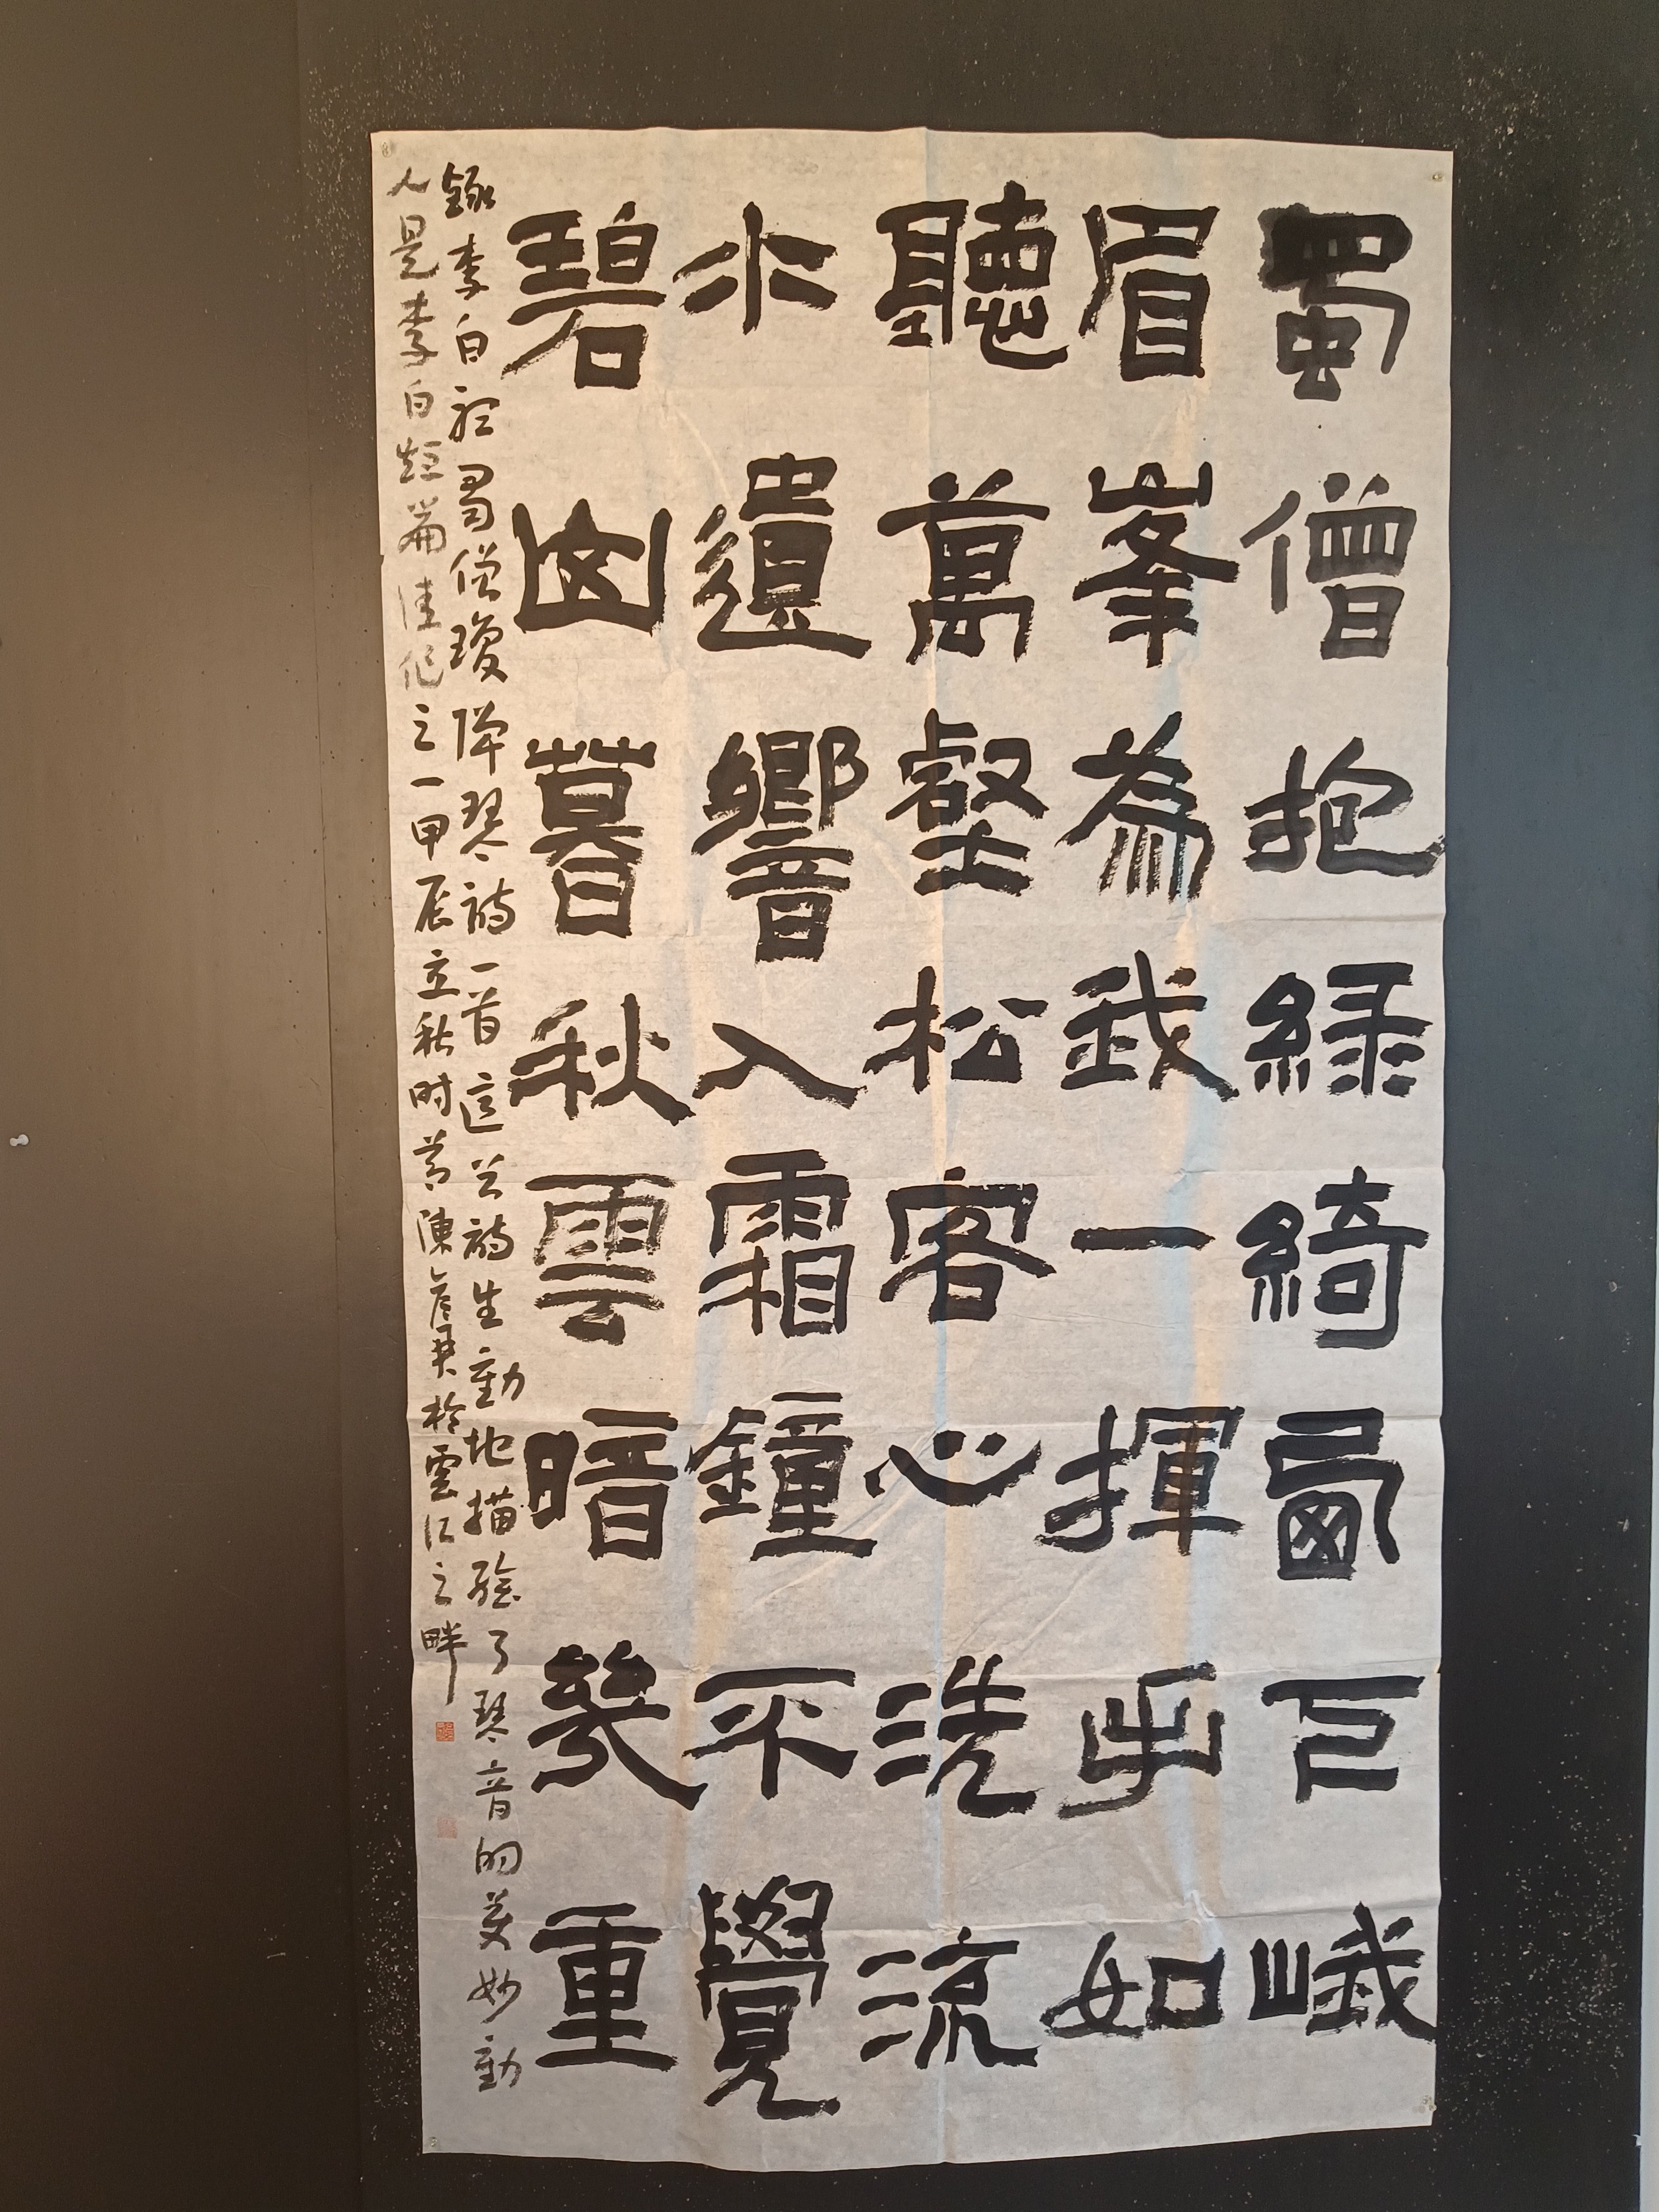 蜀僧抱綠綺西下峨
眉峯為我一揮手如
聽萬壑松客心洗流
水遺響入霜鐘不覺
碧山暮秋雲暗幾重
錄李白聽蜀僧瓊彈琴詩一首這首詩生動地描繪了琴音的美妙動
人是李白短篇佳作之一甲辰立秋时節陳彥英於雲江之畔